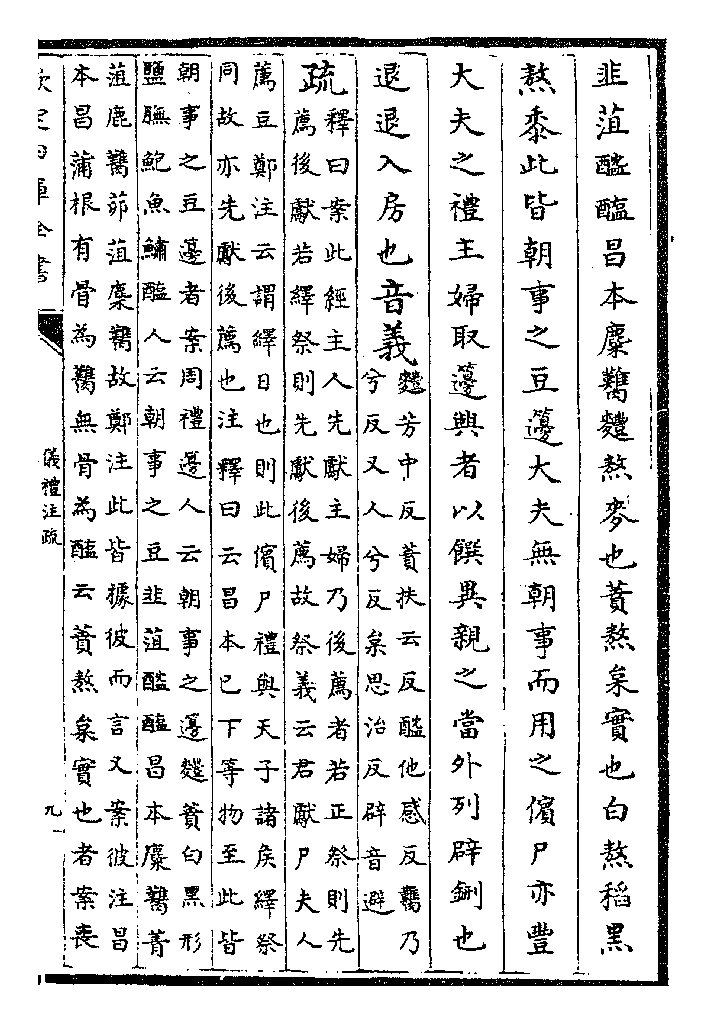 韭菹醓醢昌本麋臡麷熬麥也蕡熬枲實也白熬稻黑
熬黍此皆朝事之豆籩大夫無朝事而用之儐尸亦豐
大夫之禮主婦取籩興者以饌異親之當外列辟鉶也
退退入房也音義麷芳中反蕡扶云反醓他感反臡乃
兮反又人兮反枲思治反辟音避
疏釋曰案此經主人先獻主婦乃後薦者若正祭則先
薦後獻若繹祭則先獻後薦故祭義云君獻尸夫人
薦豆鄭注云謂繹日也則此儐尸禮與天子諸侯繹祭
同故亦先獻後薦也注釋曰云昌本已下等物至此皆
朝事之豆籩者案周禮籩人云朝事之籩麷蕡白黑形
鹽膴鮑魚鱐醢人云朝事之豆韭菹醓醢昌本麋臡菁
菹鹿臡茆菹麋臡故鄭注此皆據彼而言又案彼注昌
本昌蒲根有骨為臡無骨為醢云蕡熬枲實也者案喪
欽定四庫全書
儀禮注疏
九